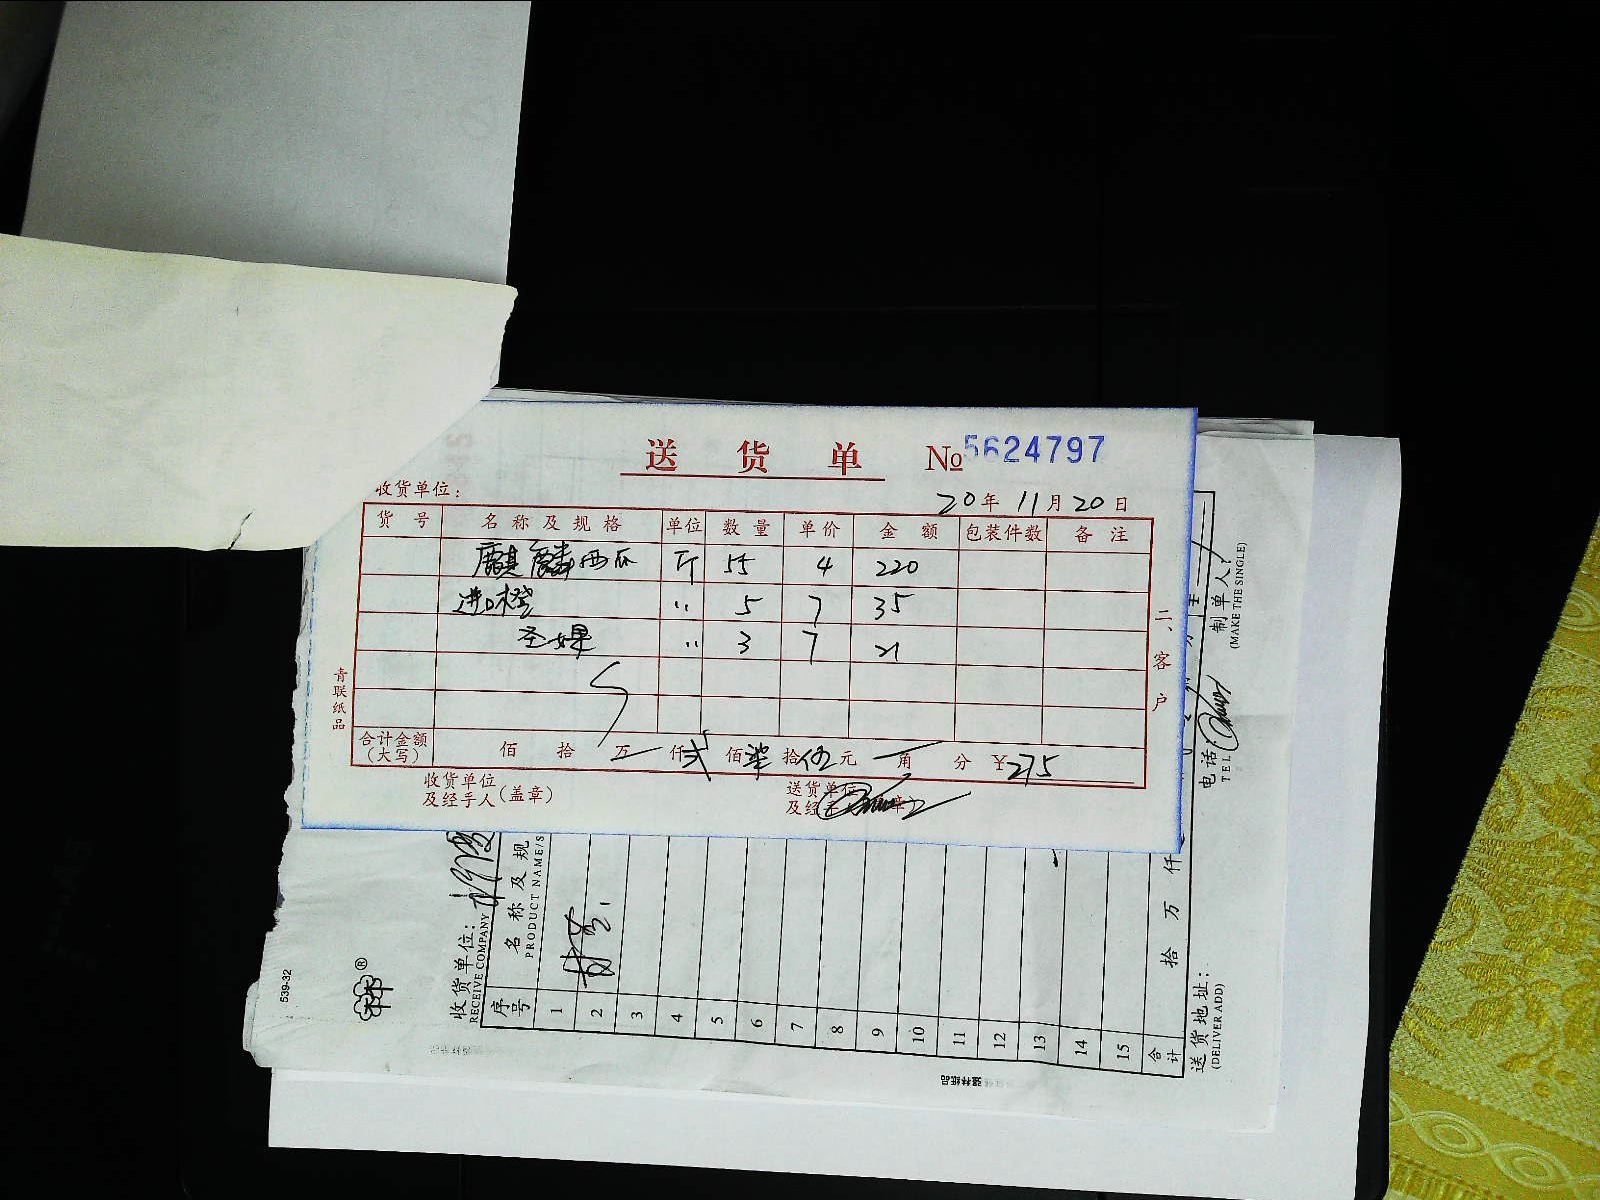 送 货 单 №5624797
收货单位：
20年11月20日
货号 名称及规格 单位 数量 单价 金额 包装件数 备注
麒麟西瓜 斤 55 4 220
进口橙 〃 5 7 35
圣女果 〃 3 7 21
合计金额（大写） 佰 拾 万 仟 贰 佰 柒 拾 伍 元 角 分 ¥275
收货单位及经手人（盖章）
送货单位及经手人（盖章）
青联纸品
二、客户
539-32
®
收货单位：
RECEIVE COMPANY
序号 名称及规
PRODUCT NAME/S
1
2
3
4
5
6
7
8
9
10
11
12
13
14
15
合计 拾 万 仟
送货地址：
(DELIVER ADD)
电话
TEL
制单人：
(MAKE THE SINGLE)